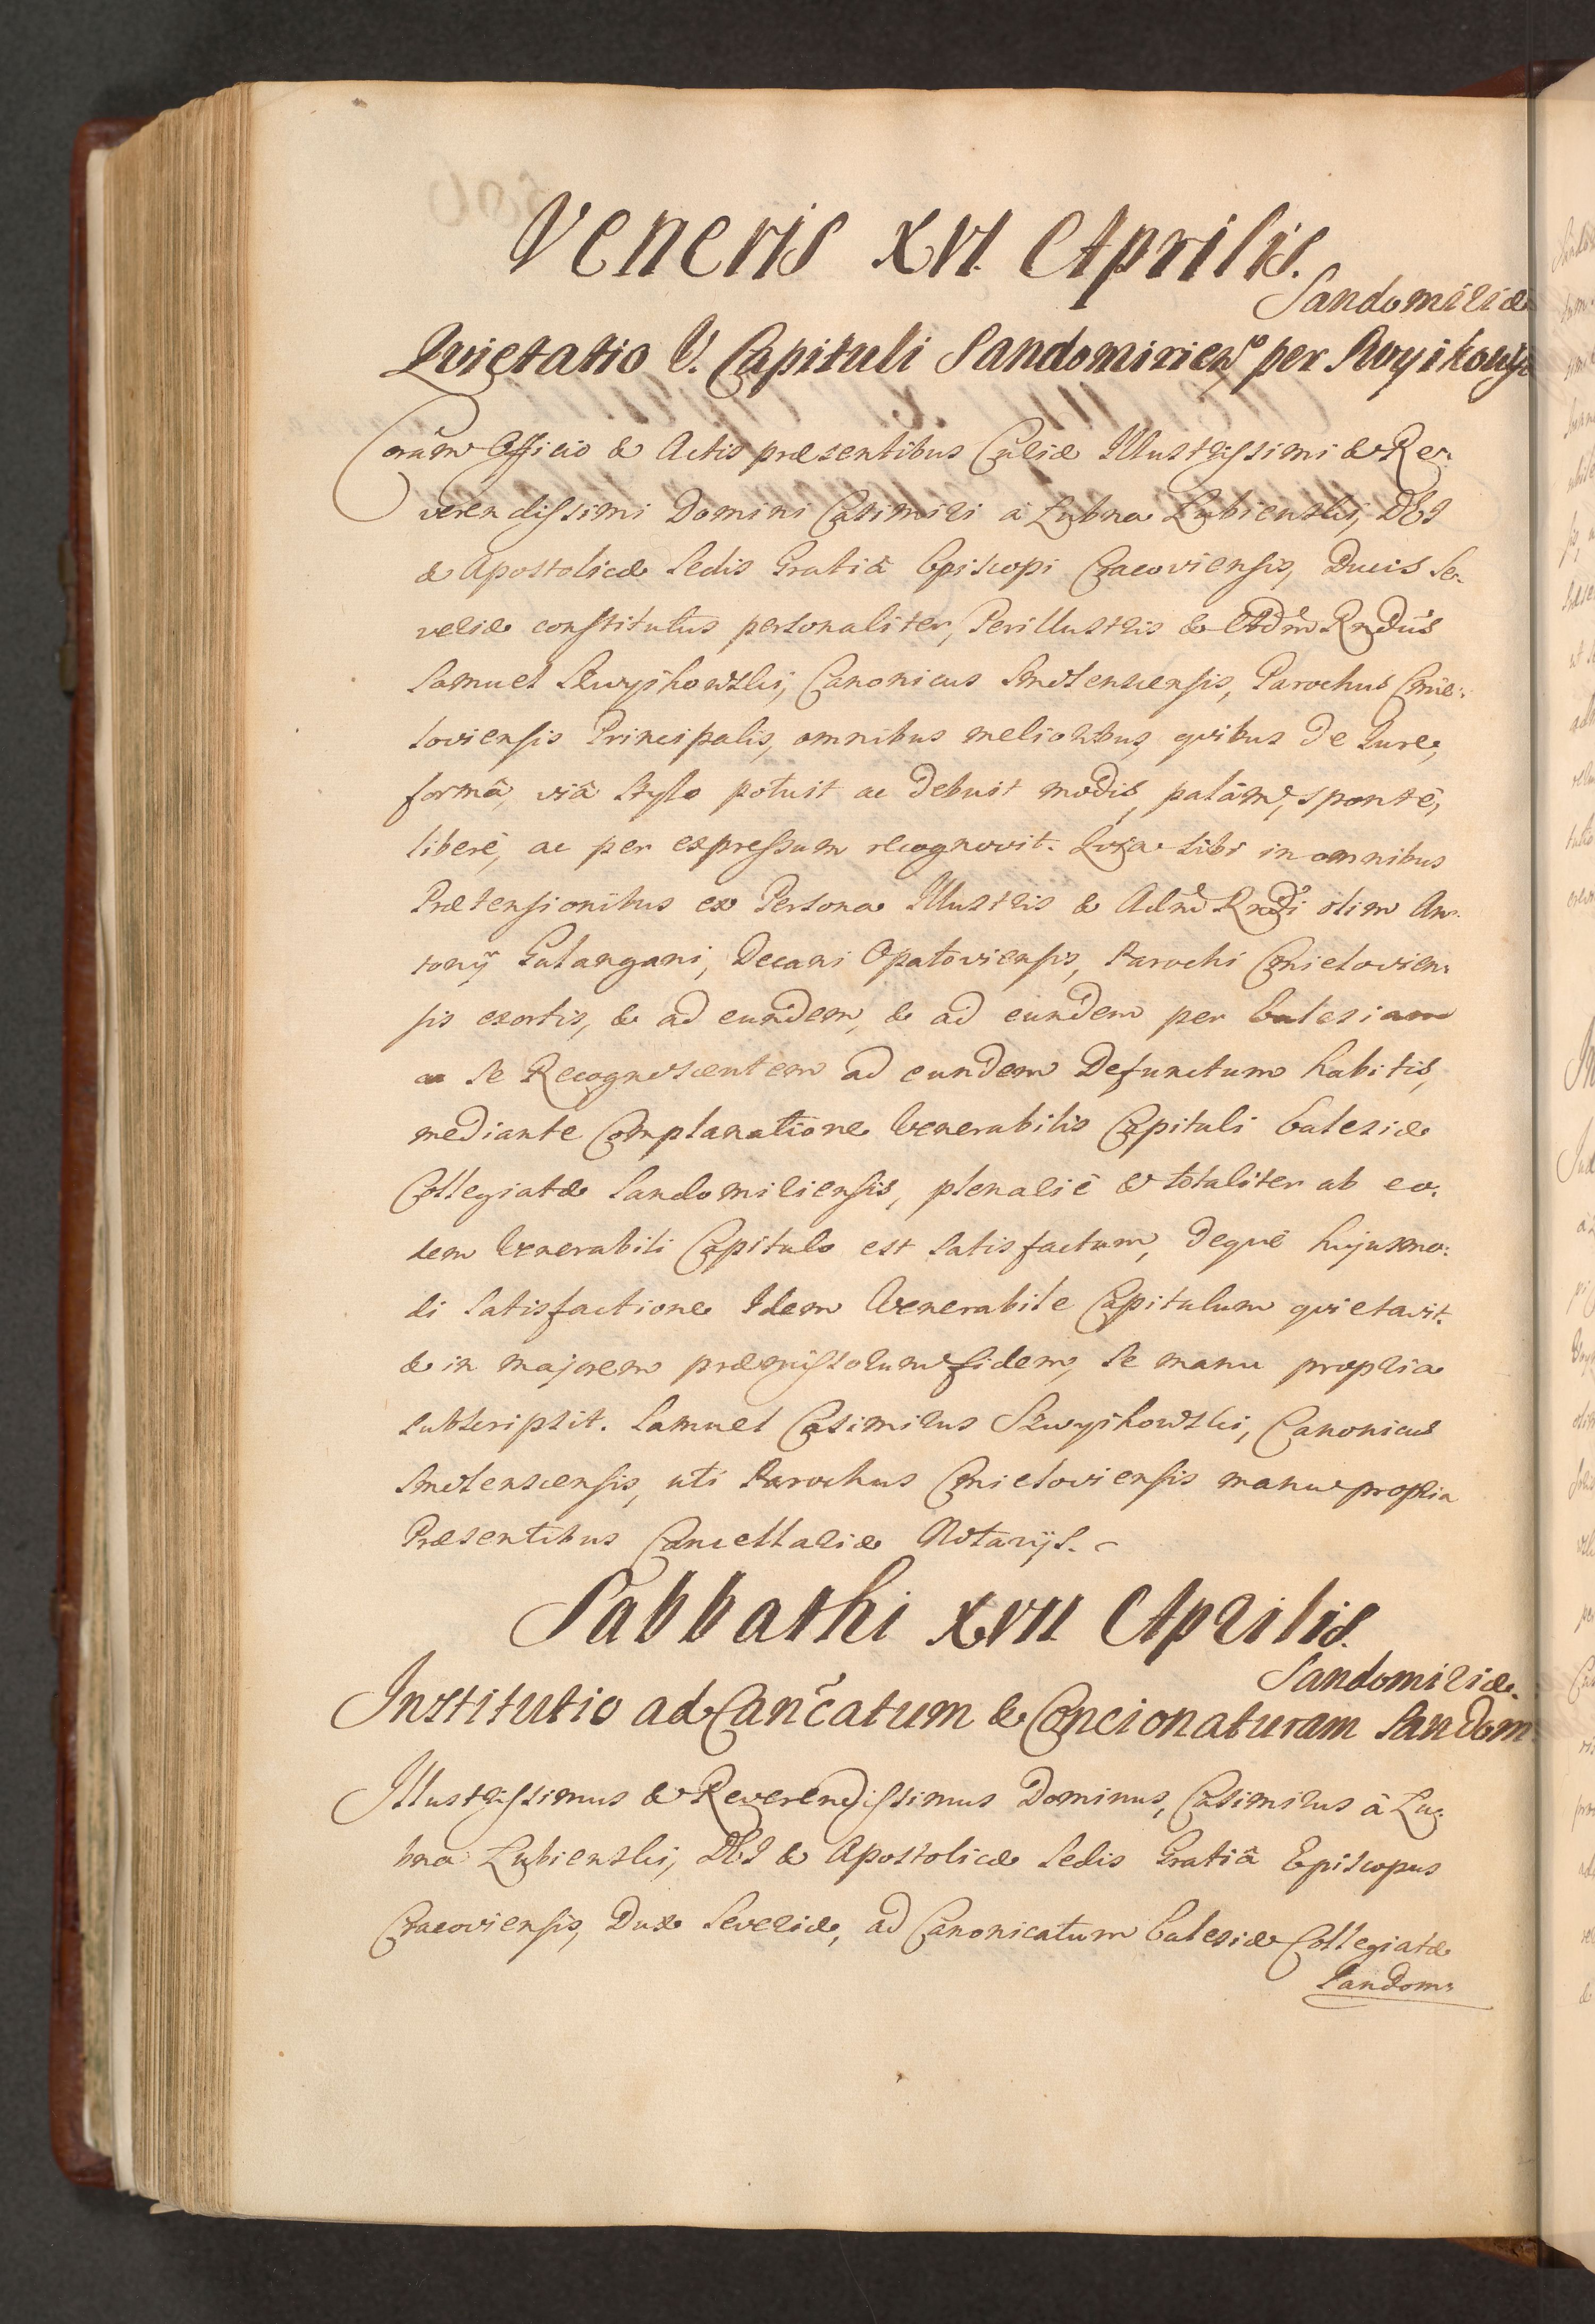 Veneris XVI. Aprilis.
Sandomiriæ
Quietatio V. Capituli Sandomirien° per
Coràm Officio & Actis præsentibus Curiæ Illustrissimi & Re-
verendissimi Domini Casimiri à Lubna Lubienski, DEI
& Apostolicæ Sedis Gratiâ Episcopi Cracoviensis, Ducis Se-
veriæ constitutus personaliter, Perillustris & Adm Rndus
Samuel Szwyikowski, Canonicus Smolenscensis, Parochus Cmie-
loviensis Principalis, omnibus melioribus, quibus de Jure,
formâ, viâ stylo potuit ac debuit modis, palàm, spontè,
liberè, ac per expressum recognovit. Quia sibi in omnibus
Prætensionibus ex Persona Illustris & Adm Rndi olim An-
tonij Galangani, Decani Opatoviensis, Parochi Cmielovien-
sis exortis, & ad eundem, & ad eundem per Ecclesiam
ac se Recognoscentem ad eundem Defunctum habitis,
mediante Complanatione Venerabilis Capituli Ecclesiæ
Collegiatæ Sandomiriensis, plenariè & totaliter ab eo-
dem Venerabili Capitulo est satisfactum, deque hujusmo-
di satisfactione Idem Venerabile Capitulum quietavit.
& in majorem præmissorum fidem, se manu propria
subscripsit. Samuel Casimirus Szwyikowski, Canonicus
Smolenscensis, uti Parochus Cmieloviensis manu propria
Præsentibus Cancellariæ Notarijs.
Sabbathi XVII Aprilis.
Sandomiriæ.
Institutio ad Cancatum & Concionaturam Sandom
Illustrissimus & Reverendissimus Dominus, Casimirus à Lu-
bna Lubienski, DEI & Apostolicæ Sedis Gratiâ Episcopus
Cracoviensis, Dux Severiæ, ad Canonicatum Ecclesiæ Collegiatæ
Sandom: